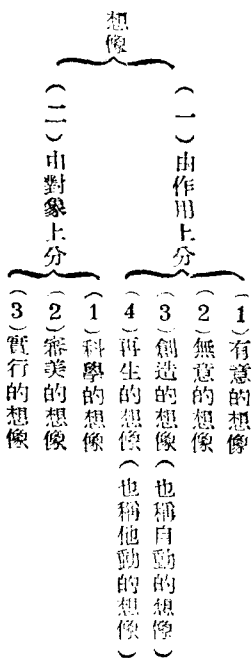 想像
(一)由作用上分
(1)有意的想像
(2)無意的想像
(3)創造的想像(也稱自動的想像)
(4)再生的想像(也稱他動的想像)
(二)由對象上分
(1)科學的想像
(2)審美的想像
(3)實行的想像